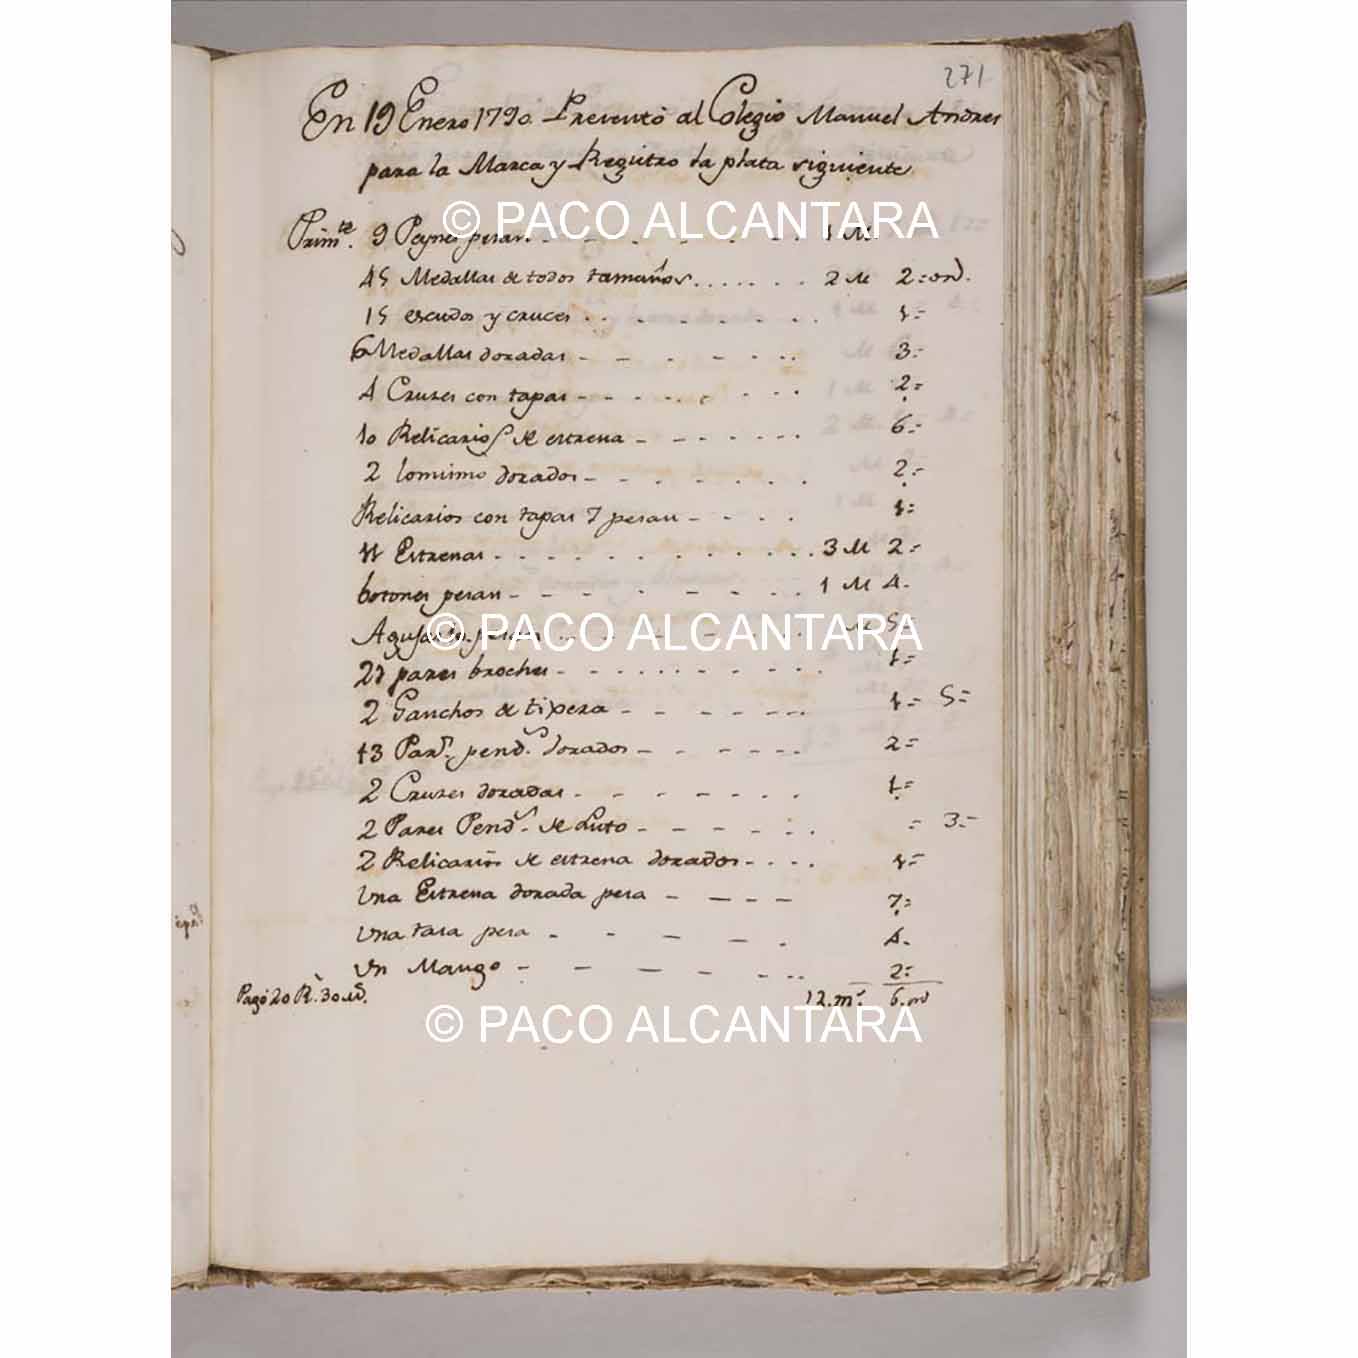 271
En 19 Enero 1790. Presentó al Colegio Manuel Andres
para la Marca y Registro la plata siguiente
© PACO ALCANTARA
Primte. 9 Peynes pesan. 1 M
45 Medallas de todos tamaños 2 M 2=ons.
15 escudos y cruces 1=
6 Medallas doradas 3=
4 Cruzes con tapas 2=
10 Relicarios de estrena 6=
2 lomismo dorados 2=
Relicarios con tapas 7 pesan 1=
11 Estrenas 3 M 2=
botones pesan 1 M 4.
© PACO ALCANTARA
Agujas pesan M 5=
27 pares broches 1=
2 Ganchos de tixera 1= 5=
13 Pars. pends. dorados 2=
2 Cruzes doradas 1=
2 Pares Pends. de Luto = 3=
2 Relicarios de estrena dorados 1=
Una Estrena dorada pesa 7=
Una tasa pesa 4.
Un Mango 2=
Pagó 20 Rs. 30 md. 12.ms. 6.ons
© PACO ALCANTARA